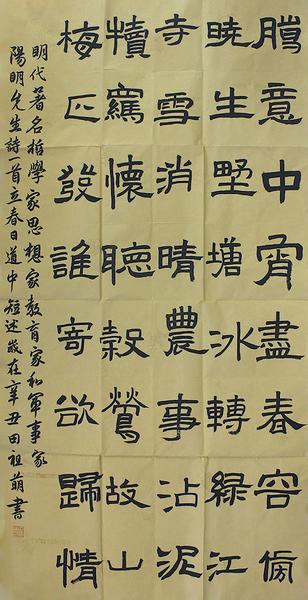 臘意中宵盡春容傍
曉生墅塘冰轉綠江
寺雪消晴農事沾泥
犢羈懷聽穀鶯故山
梅正發誰寄欲歸情
明代著名哲學家思想家教育家和軍事家
陽明先生詩一首立春日道中短述歲在辛丑田祖萌書